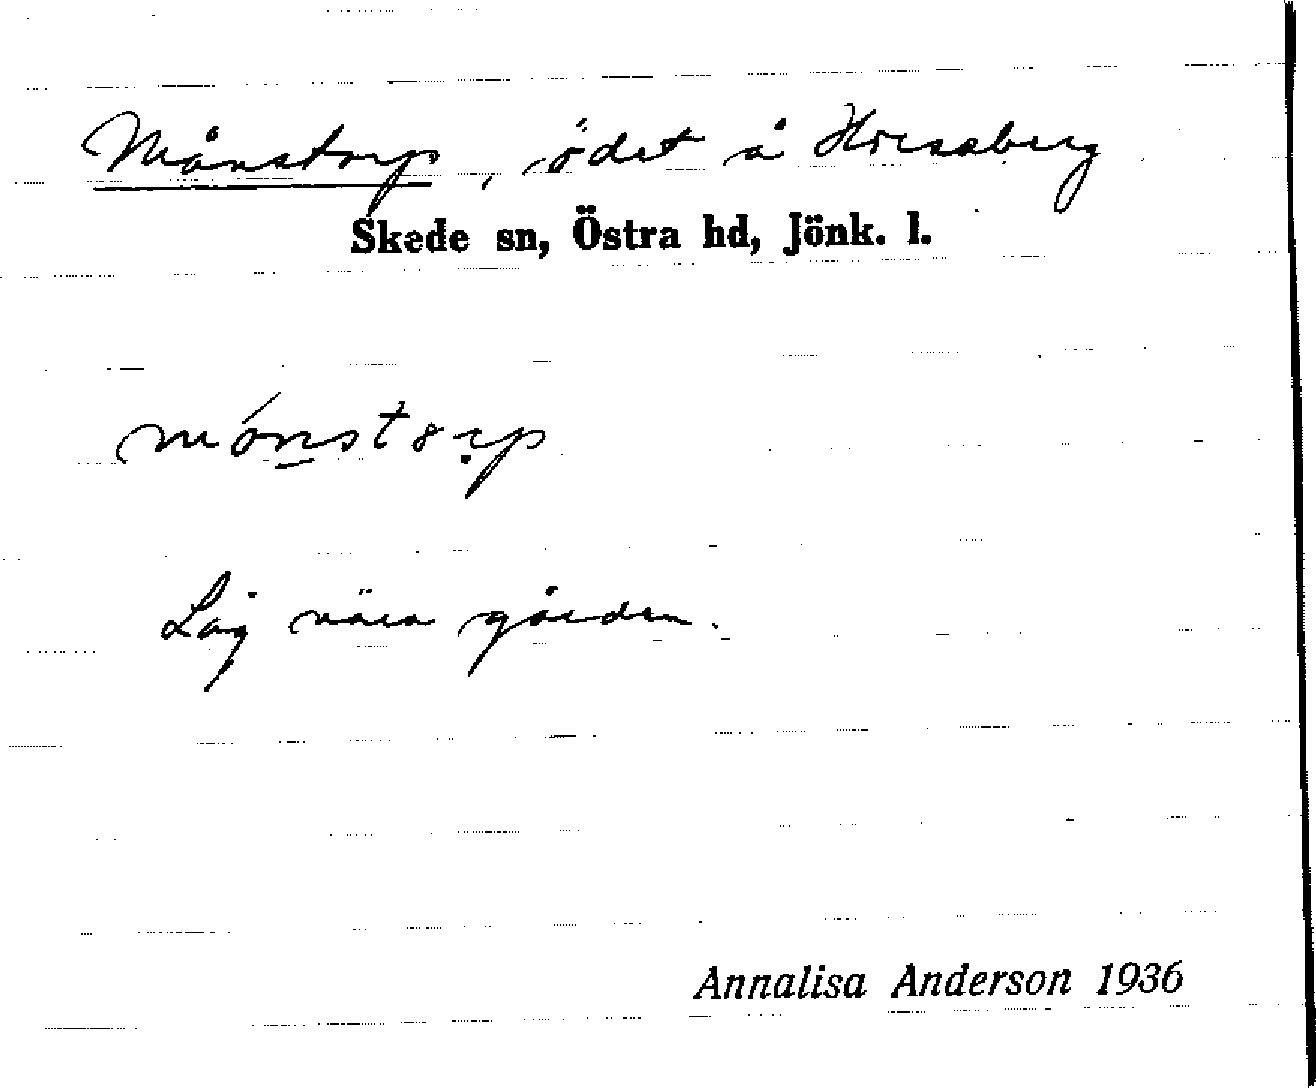 Månstorp, ödet å Hvessberg
Skede sn, Östra hd, Jönk. l.
mónstorp
Låg nära gården.
Annalisa Anderson 1936